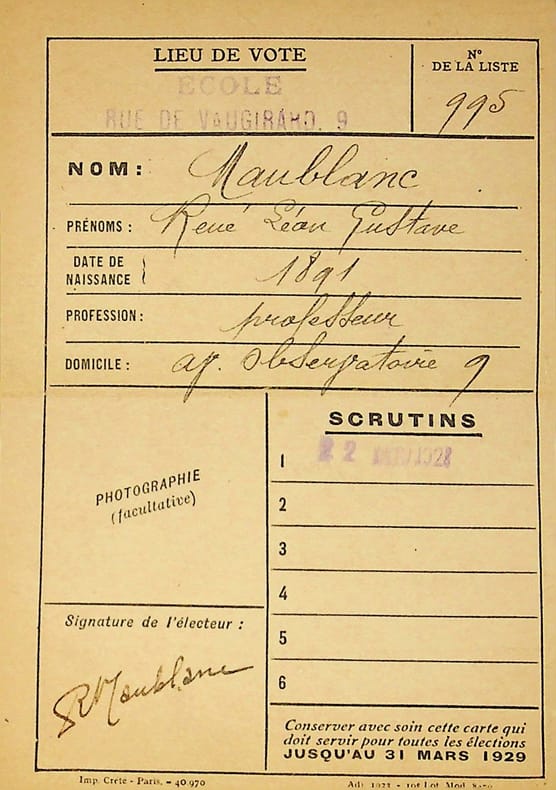 LIEU DE VOTE
ECOLE
RUE DE VAUGIRARD. 9
N°
DE LA LISTE
995
NOM: Maublanc
PRÉNOMS: René Léon Gustave
DATE DE
NAISSANCE } 1891
PROFESSION: professeur
DOMICILE: av. Observatoire 9
PHOTOGRAPHIE
(facultative)
SCRUTINS
1 22 1928
2
3
4
5
6
Signature de l'électeur :
RMaublanc
Conserver avec soin cette carte qui
doit servir pour toutes les élections
JUSQU'AU 31 MARS 1929
Imp. Crété - Paris. - 40.970